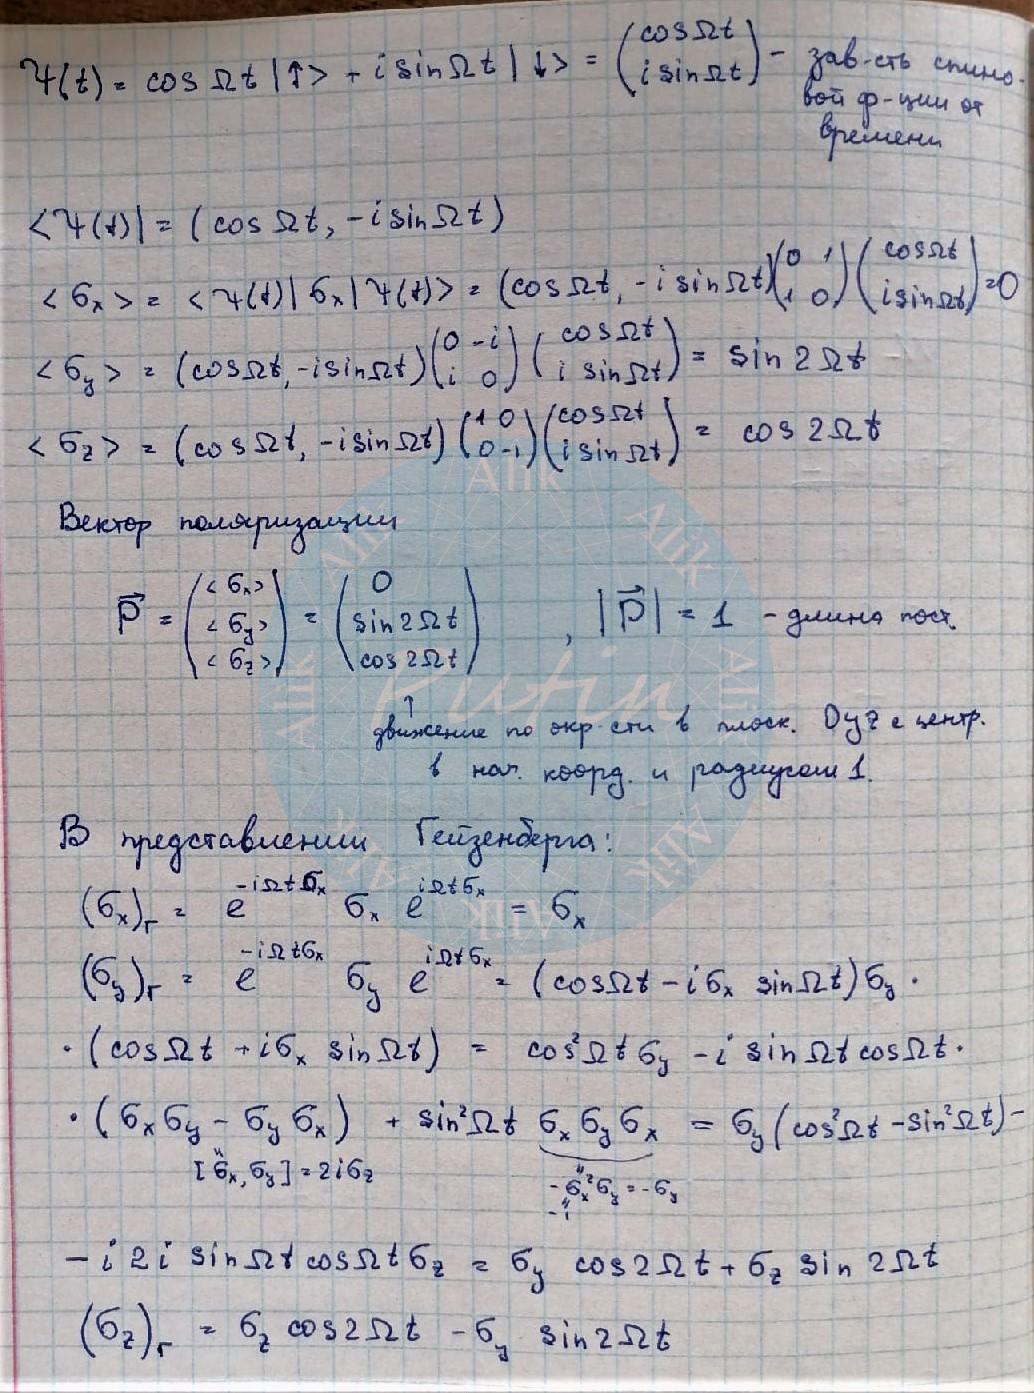 Ψ(t) = cos Ωt |↑> + i sin Ωt |↓> = (cos Ωt / i sin Ωt) - зав-сть спино-
вой ф-ции от
времени
<Ψ(t)| = (cos Ωt, -i sin Ωt)
<σx> = <Ψ(t)| σx |Ψ(t)> = (cos Ωt, -i sin Ωt)(0 1 / 1 0)(cos Ωt / i sin Ωt) = 0
<σy> = (cos Ωt, -i sin Ωt)(0 -i / i 0)(cos Ωt / i sin Ωt) = sin 2Ωt
<σz> = (cos Ωt, -i sin Ωt)(1 0 / 0 -1)(cos Ωt / i sin Ωt) = cos 2Ωt
Вектор поляризации
P⃗ = (<σx> / <σy> / <σz>) = (0 / sin 2Ωt / cos 2Ωt), |P⃗| = 1 - длина пост.
↑
движение по окр-сти в плоск. Oyz с центр.
в нач. коорд. и радиусом 1.
В представлении Гейзенберга:
(σx)г = e^(-iΩtσx) σx e^(iΩtσx) = σx
(σy)г = e^(-iΩtσx) σy e^(iΩtσx) = (cos Ωt - iσx sin Ωt) σy ·
· (cos Ωt + iσx sin Ωt) = cos²Ωt σy - i sin Ωt cos Ωt ·
· (σxσy - σyσx) + sin²Ωt σxσyσx = σy (cos²Ωt - sin²Ωt) -
[σx, σy] = 2iσz
-σx²σy = -σy
- i 2i sin Ωt cos Ωt σz = σy cos 2Ωt + σz sin 2Ωt
(σz)г = σz cos 2Ωt - σy sin 2Ωt
Alik
Alik
Alik
Alik
Alik
Alik
Alik
Alik
Putin